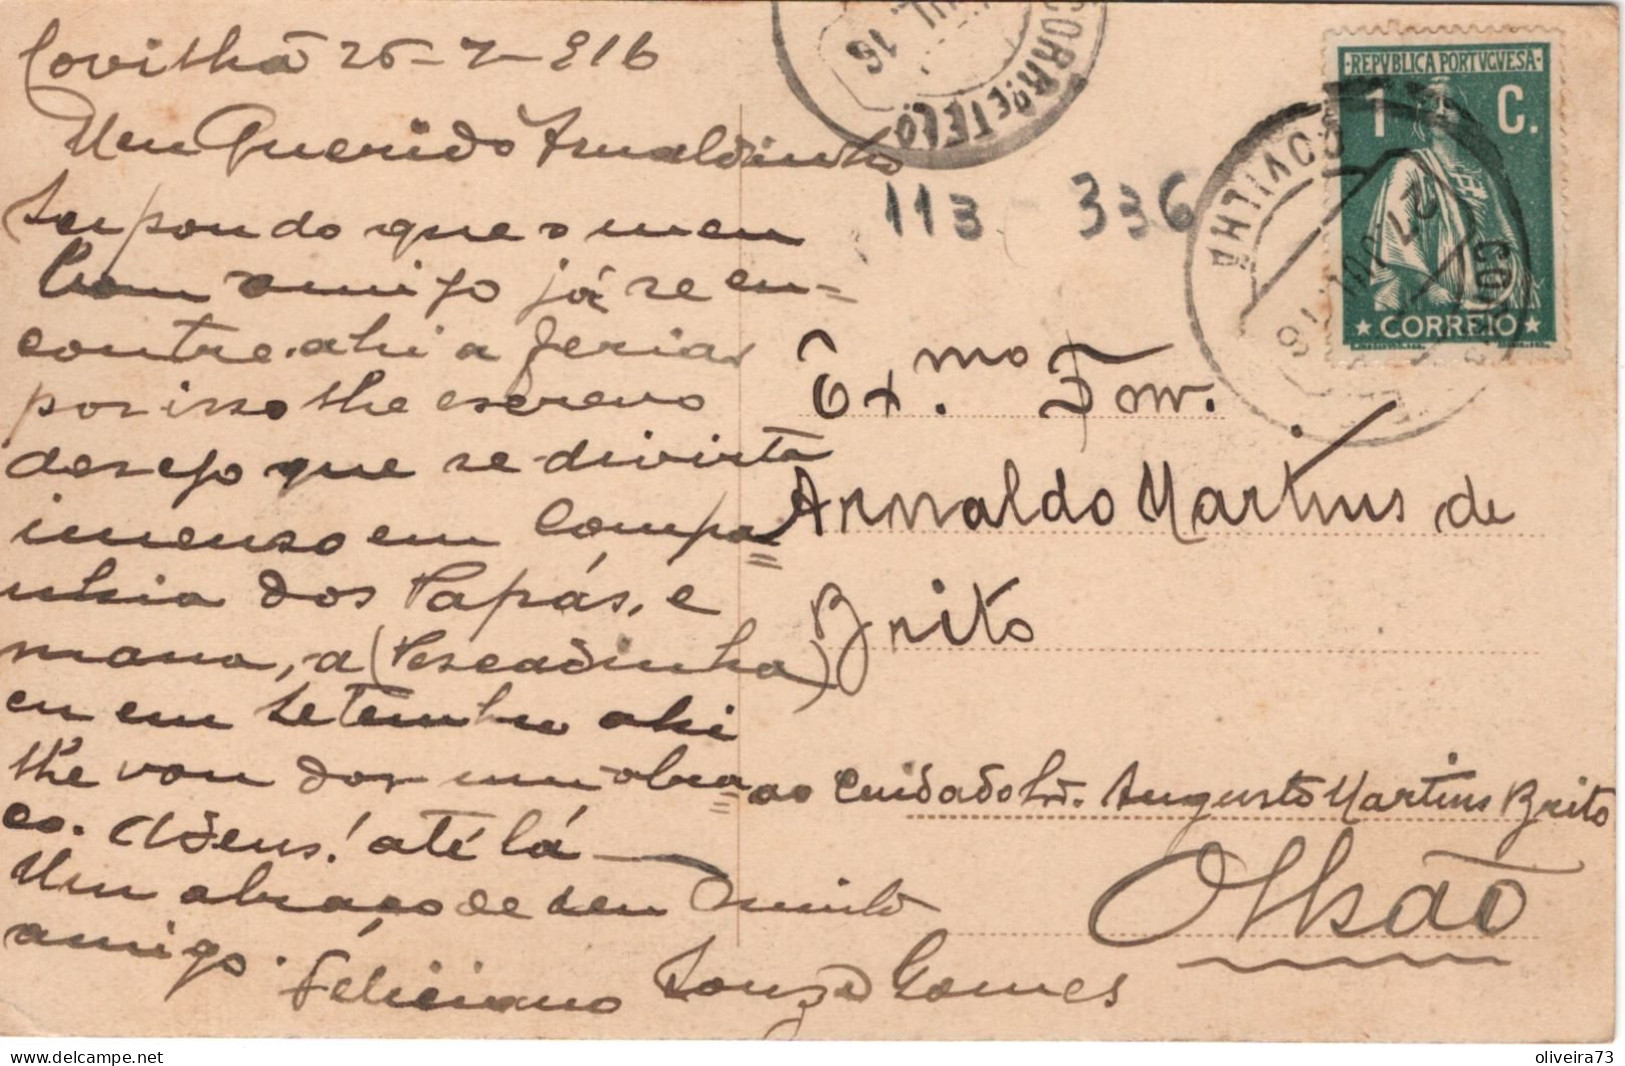 Covilhã 26-7-916
Meu Querido Arnaldinho
Suppondo que o meu
bom amigo já se en-
contre ahi a ferias
por isso lhe escrevo
desejo que se divirta
imenso em compa=
nhia dos Papás, e
mana, a (Pescadinha)
eu em Setembro ahi
lhe vou dar um abra=
ço. Adeus! até lá
Um abraço de seu muito
amigo. Feliciano Souza Gomes
CORR.º E TEL.
16
113 336
REPVBLICA PORTVGVESA
1 C.
CORREIO
COVILHÃ
27 JUL 16
Ex.mo Snr.
Arnaldo Martins de
Brito
ao Cuidado Snr. Augusto Martins Brito
Olhão
delcampe.net
oliveira73